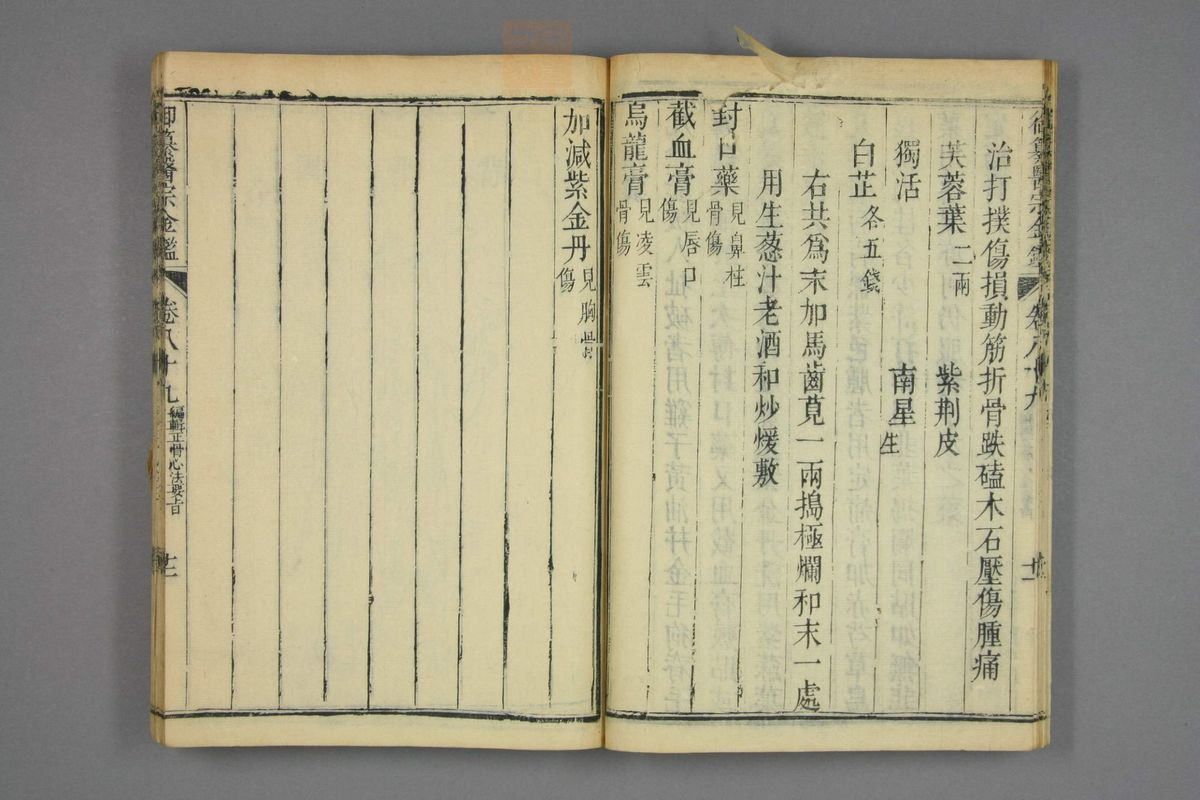 御纂醫宗金鑑 卷八十九
治打撲傷損動筋折骨跌磕木石壓傷腫痛
芙蓉葉二兩 紫荆皮
獨活 南星生
白芷各五錢
右共為末加馬齒莧一兩搗極爛和末一處
用生葱汁老酒和炒煖敷
封口藥見鼻柱骨傷
截血膏見唇口傷
烏龍膏見凌雲骨傷
加減紫金丹見胸骨傷
御纂醫宗金鑑 卷八十九 編輯正骨心法要旨